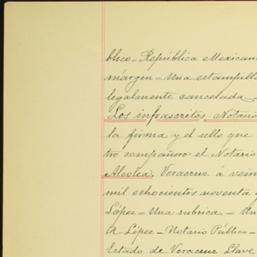 blico - República Mexicana
márgen - Una estampilla
legalmente cancelada
Los infrascritos, Notario
la firma y el sello que
tro compañero el Notario
Veracruz á vein
mil ochocientos noventa
López - Una rúbrica
A. López - Notario Público -
Estado de Veracruz Llave